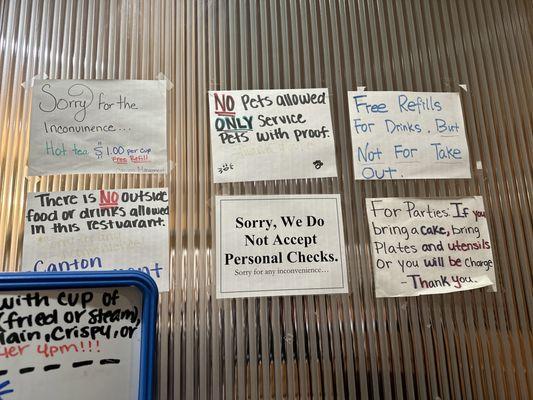 Sorry for the
Inconvinence...
Hot tea $1.00 per cup
Free Refill
NO Pets allowed
ONLY Service
Pets with proof.
Free Refills
For Drinks. But
Not For Take
Out.
There is NO outside
food or drinks allowed
in this restuarant.
Canton
Sorry, We Do
Not Accept
Personal Checks.
Sorry for any inconvenience...
For Parties: If you
bring a cake, bring
Plates and utensils
Or you will be charge
- Thank you.
with cup of
(fried or steam),
lain, Crispy, or
ter 4pm!!!